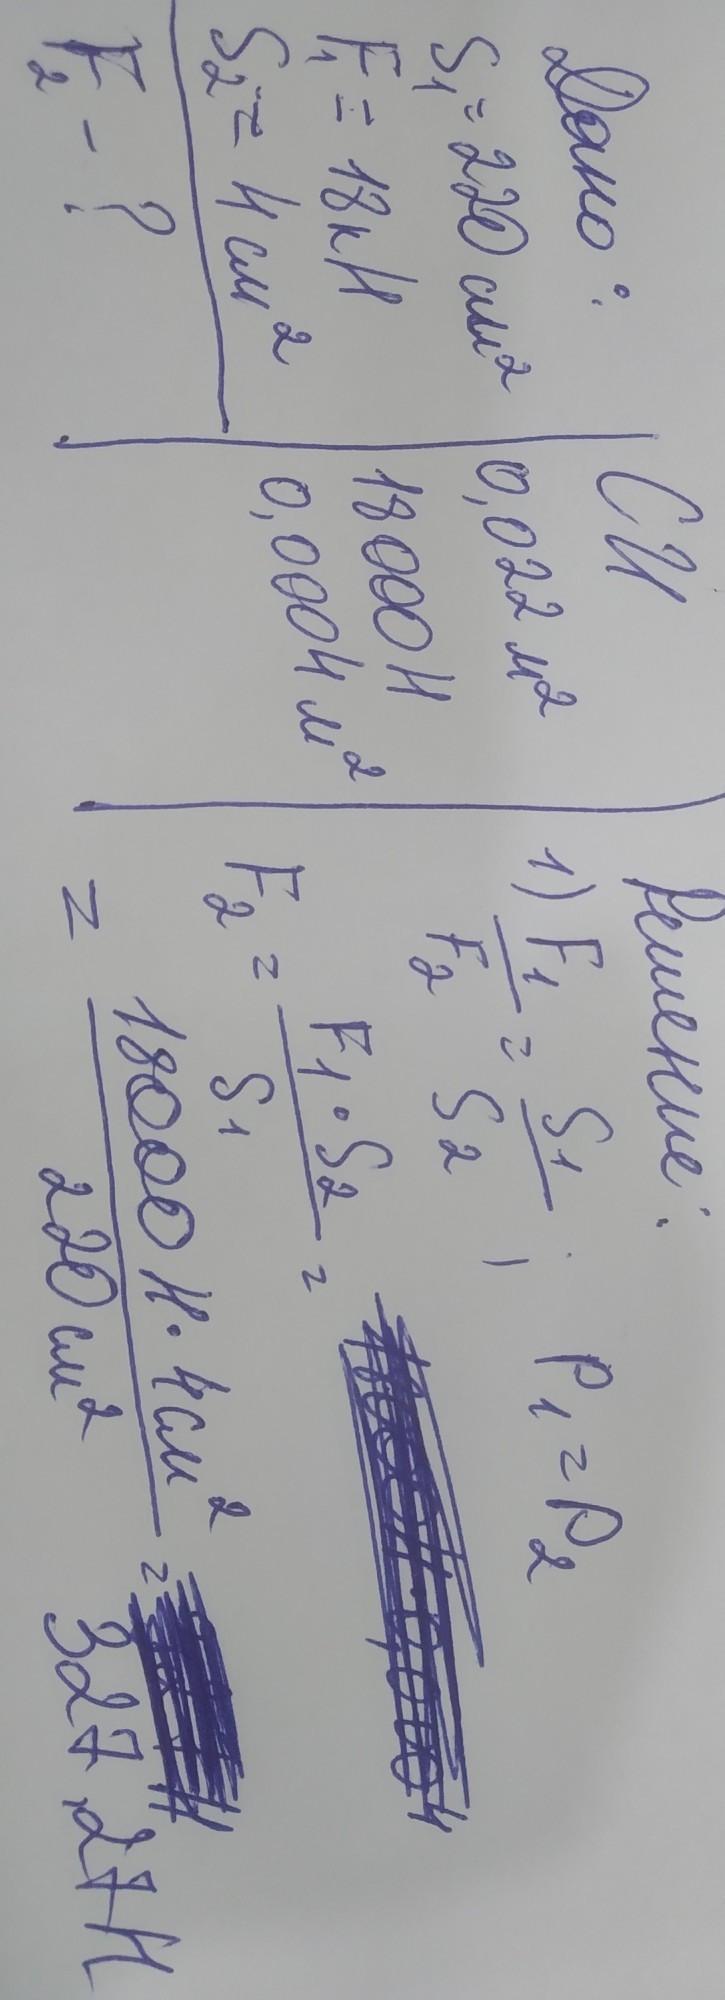 Дано:
S₁ = 220 см²
F₁ = 18 кН
S₂ = 4 см²
F₂ - ?
СИ
0,022 м²
18000 Н
0,0004 м²
Решение:
1) F₁/F₂ = S₁/S₂ ; P₁ = P₂
F₂ = F₁ · S₂/S₁ =
= 18000 Н · 4 см²/220 см² = 327,27 Н